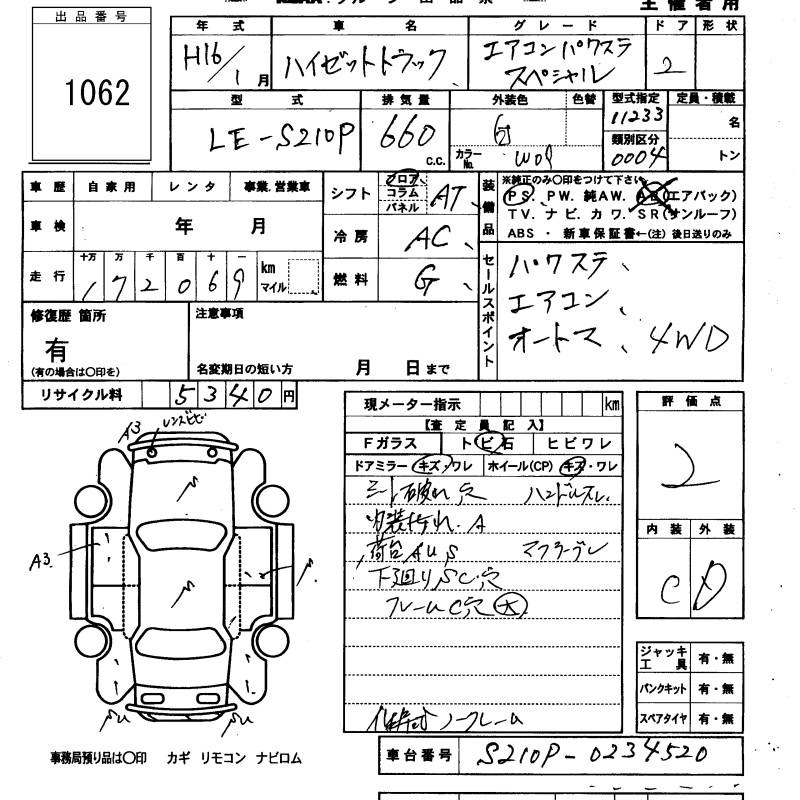 出品番号
1062
年式 車名 グレード ドア 形状
H16/1月 ハイゼットトラック エアコンパワステ スペシャル 2
型式 排気量 外装色 色替 型式指定 定員・積載
LE-S210P 660 c.c. 白 11233 名
カラーNo. W09 類別区分 0004 トン
車歴 自家用 レンタ 事業.営業車
車検 年 月
走行 十万 万 千 百 十 一
172069 km マイル
シフト フロア コラム パネル AT
冷房 AC
燃料 G
装備品
※純正のみ〇印をつけて下さい。
PS. PW. 純AW. AB(エアバック)
TV. ナビ. カワ. SR(サンルーフ)
ABS ・ 新車保証書←(注) 後日送りのみ
セールスポイント
パワステ、
エアコン、
オートマ、4WD
修復歴 箇所
有
(有の場合は〇印を)
注意事項
名変期日の短い方 月 日まで
リサイクル料 5340円
現メーター指示 km
【査定員記入】
Fガラス トビ石 ヒビワレ
ドアミラー キズ・ワレ ホイール(CP) キズ・ワレ
シート破れ 穴 ハンドルスレ
内装汚れ.A
荷台AUS
下廻りSC穴
フレームC穴 大
評価点
2
内装 外装
C D
ジャッキ工具 有・無
パンクキット 有・無
スペアタイヤ 有・無
A3
レンズヒビ
A3
事務局預り品は〇印 カギ リモコン ナビロム
車台番号 S210P-0234520